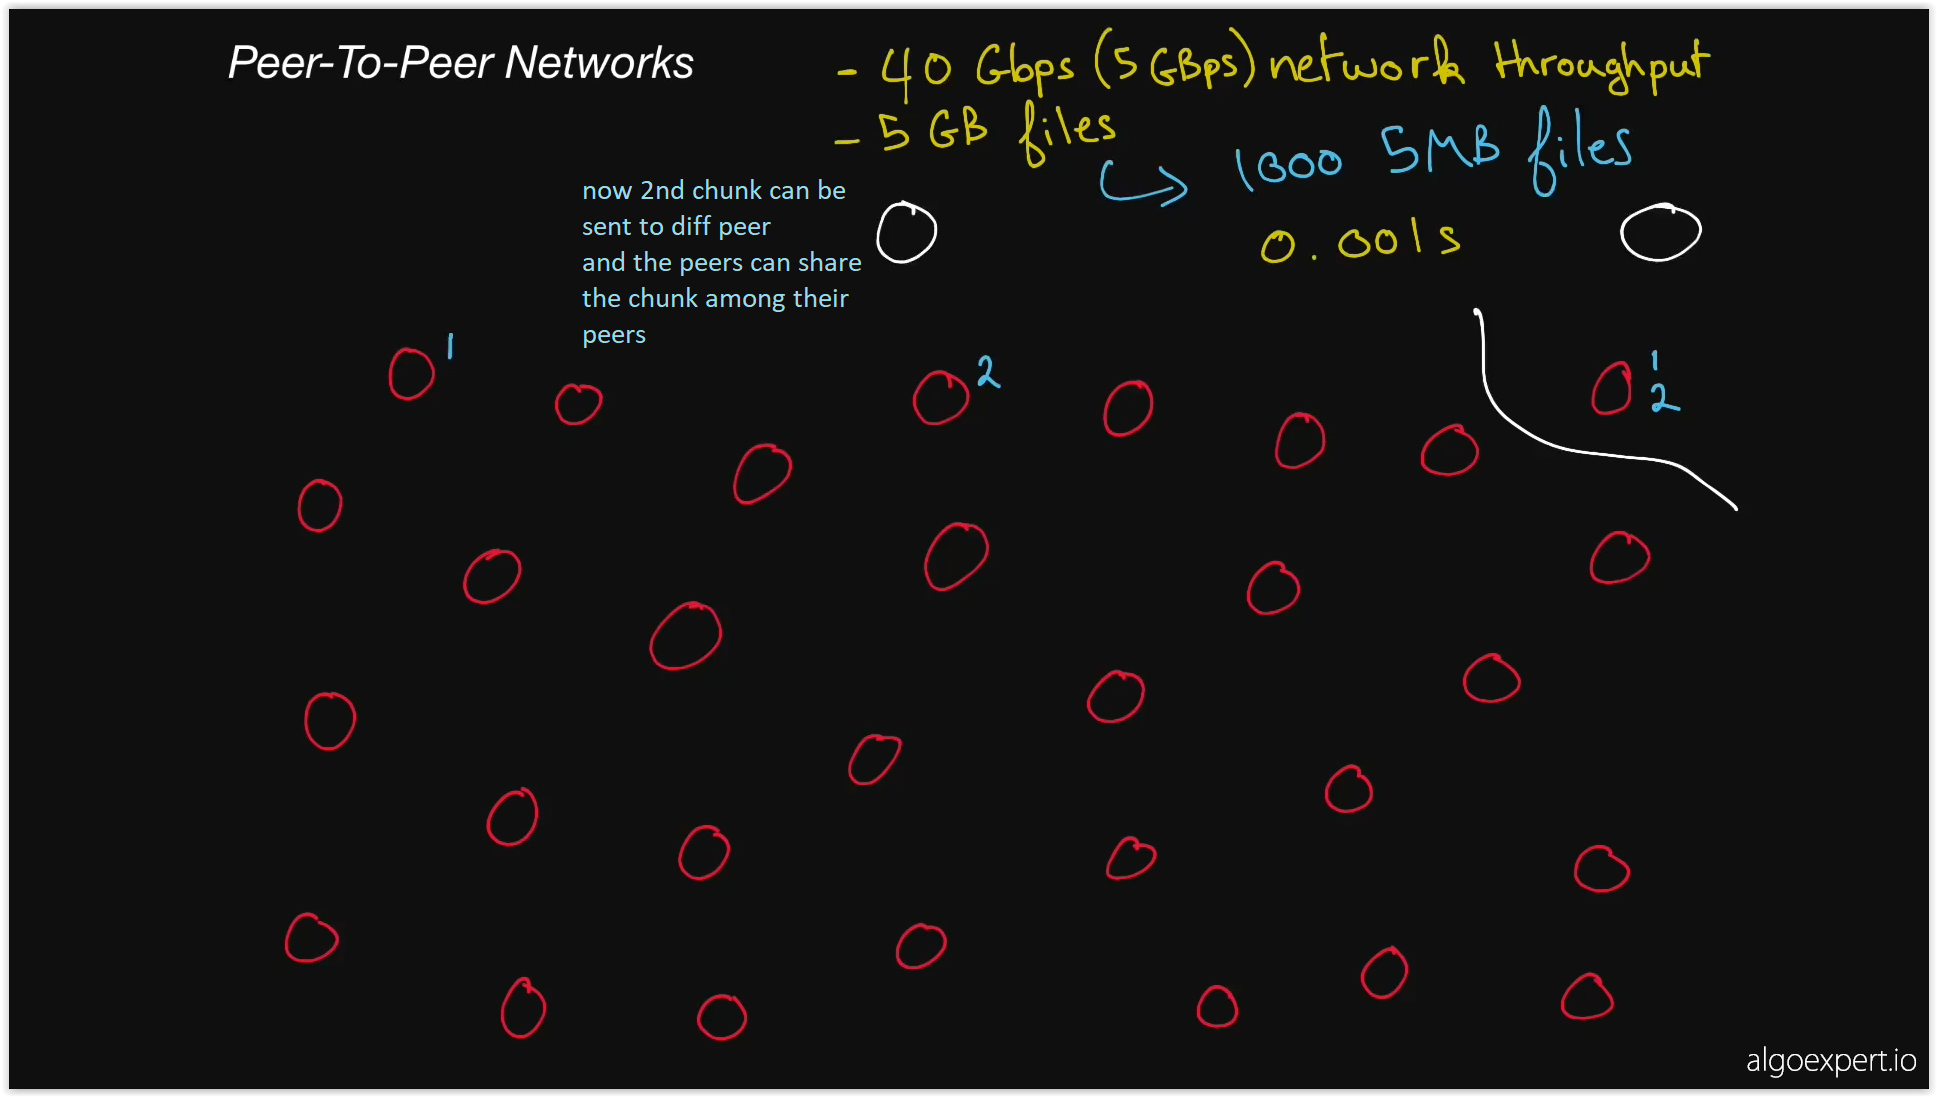 Peer-To-Peer Networks
- 40 Gbps (5 GBps) network throughput
- 5 GB files
1000 5MB files
0.001s
now 2nd chunk can be
sent to diff peer
and the peers can share
the chunk among their
peers
1
2
1
2
algoexpert.io